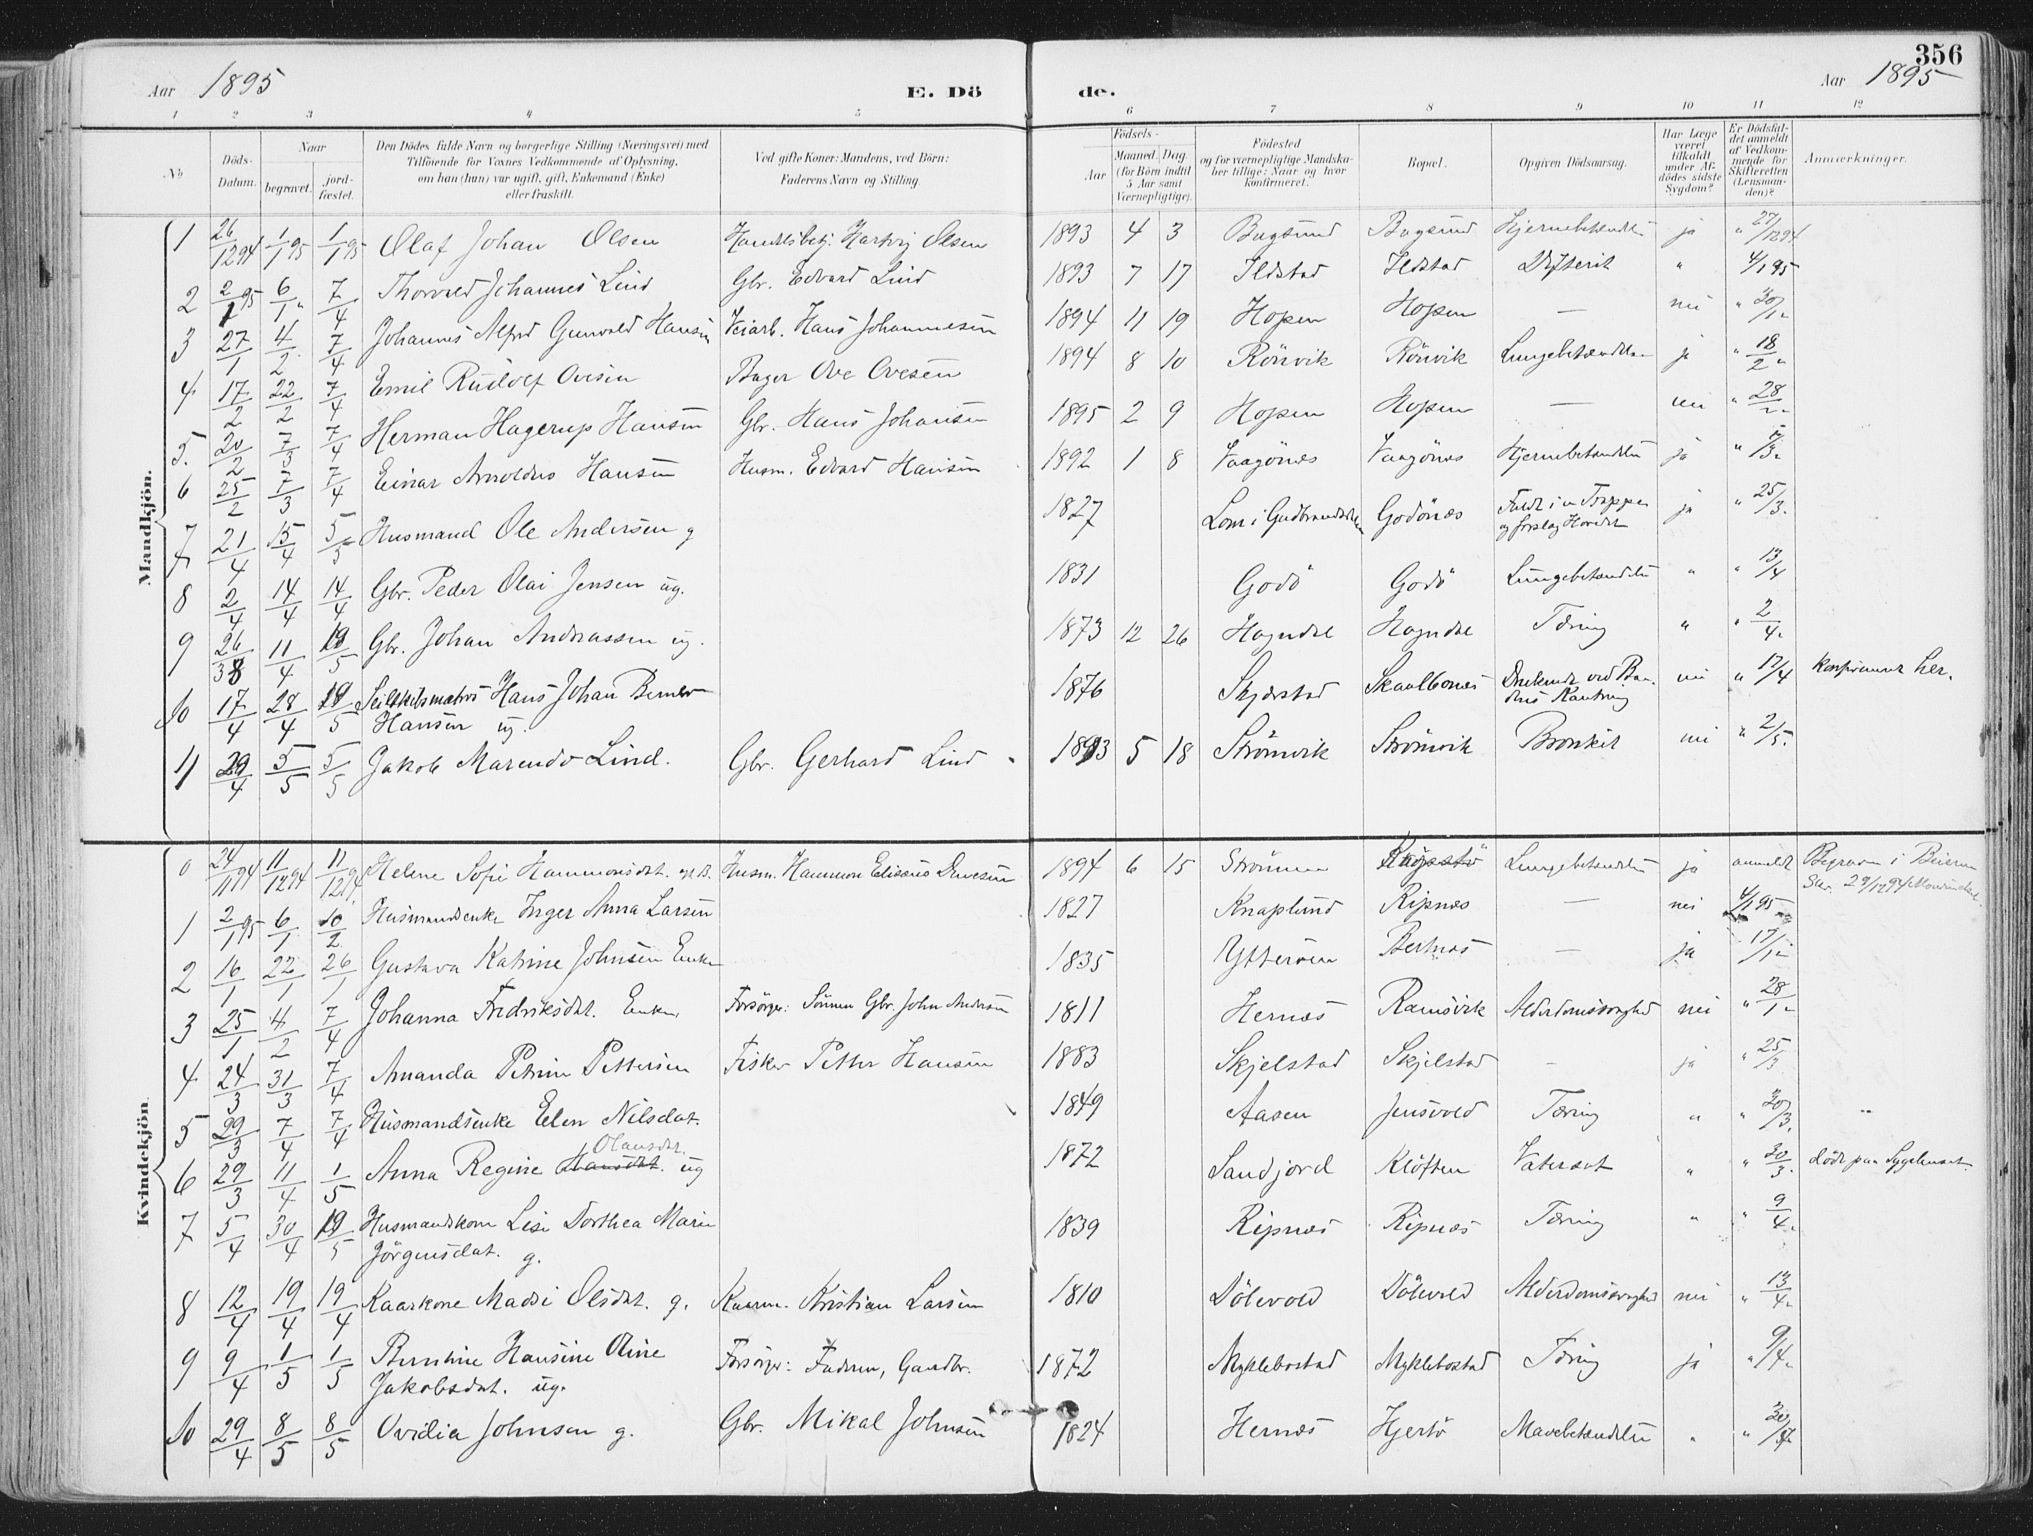 356
Aar 1895
E. Döde.
Aar 1895
1 2 3 4 5 6 7 8 9 10 11 12
No
Döds-Datum.
Naar
begravet.
jord-fæstet.
Den Dödes fulde Navn og borgerlige Stilling (Næringsvei) med
Tilföiende for Voxnes Vedkommende af Oplysning,
om han (hun) var ugift, gift, Enkemand (Enke)
eller fraskilt.
Ved gifte Koner: Mandens, ved Börn:
Faderens Navn og Stilling.
Födsels-
Aar
Maaned. Dag.
(for Börn indtil
5 Aar samt
Værnepligtige).
Födested
og for værnepligtige Mandska-
ber tillige: Naar og hvor
konfirmeret.
Bopæl.
Opgiven Dödsaarsag.
Har Læge
været
tilkaldt
under Af-
dödes sidste
Sygdom?
Er Dödsfal-
det anmeldt
af Vedkom-
mende for
Skifteretten
(Lensman-
den)?
Anmærkninger.
Mandkjön.
1 26/12 94 1/1 95 1/1 95 Olaf Johan Olsen Handelsbetj. Hartvig Olsen 1893 4 3 Bugsund Bugsund Hjernebetændelse ja " 27/12 94
2 2/1 95 6/1 " 7/4 Thorvald Johannes Lind Gbr. Edvard Lind 1893 7 17 Ildstad Ildstad Difterit " 4/1 95
3 27/1 4/2 7/4 Johannes Alfred Gunvald Hansen Veiarb. Hans Johannesen 1894 11 19 Hopen Hopen — nei " 30/1
4 17/2 22/2 7/4 Emil Rudolf Ovesen Bager Ove Ovesen 1894 8 10 Rönvik Rönvik Lungebetændelse ja " 18/2 "
5. 20/2 7/3 7/4 Herman Hagerup Hansen Gbr. Hans Johansen 1895 2 9 Hopen Hopen — nei " 28/2
6 25/2 7/3 7/4 Einar Arnoldus Hansen Husm. Edvard Hansen 1892 1 8 Vaagönes Vaagönes Hjernebetændelse ja "
7 21/4 15/4 5/5 Husmand Ole Andersen g 1827 Lom i Gudbrandsdalen Godönes Faldt i en Trappe
og forslog Hovedet ja " 25/3.
8 2/4 14/4 14/4 Gbr. Peder Olai Jensen ug. 1831 Godö Godö Lungebetændelse " " 13/4
9 26/3 11/4 19/5 Gbr. Johan Andreassen ug. 1873 12 26 Hogndal Hogndal Tæring " " 2/4.
10 17/4 28/4 19/5 Seilskibsmatros Hans Johan Berner
Hansen ug. 1876 Skjerstad Skaalbones Druknede ved Baa-
dens Kantring nei " 17/4 Konfirmeret her.
11 29/4 5/5 5/5 Jakob Marendo Lind. Gbr. Gerhard Lind 1893 5 18 Strömvik Strömvik Bronkit nei " 2/5.
Kvindekjön.
0 24/11 94 11/12 94 11/12 94 Helene Sofie Hammonsdat. Husm. Hammon Eliseus 1894 6 15 Strömmen Lungebetændelse ja anmeldt Begraven i Beieren
1 2/1 95 6/1 10/2 Husmandsenke Inger Anna Larsen 1827 Knaplund Ripnæs — nei 4/1 95
2 16/1 22/1 26/1 Gustava Katrine Johnsen Enke 1835 Ytteröen Bertnæs — ja 17/1
3 25/1 4/2 7/4 Johanna Fredriksdat. Enke, Forsörger: Sönnen Gbr. John Andersen 1811 Hernæs Ramsvik Alderdomssvaghed nei " 28/1
4 24/3 31/3 7/4 Amanda Petrine Pettersen Fisker Petter Hansen 1883 Skjelstad Skjelstad — ja " 25/3
5 29/3 7/4 7/4 Husmandsenke Elen Nilsdat. 1849 Aasen Jensvold Tæring " " 30/3.
Olausdat.
6 29/3 11/4 1/5 Anna Regine Hansdat. ug 1872 Sandjord Klöften Vatersot " " 30/3. döde paa Sygehuset
7 5/4 30/4 19/5 Husmandskone Lise Dorthea Marie
Jörgensdat. g. 1839 Ripnæs Ripnæs Tæring " " 9/4.
8 12/4 19/4 19/4 Kaarkone Madsi Olsdat. g. Kaarm. Kristian Larsen 1810 Dölevold Dölevold Alderdomssvaghed nei " 13/4.
9 9/4 1/5 1/5 Berntine Hansine Oline
Jakobsdat. ug. Forsörger: Faderen, Gaardbr. 1872 Myklebostad Myklebostad Tæring ja " 9/4.
10 29/4 8/5 8/5 Ovidia Johnsen g. Gbr. Mikal Johnsen 1824 Hernæs Hjertö Mavebetændelse " " 30/4